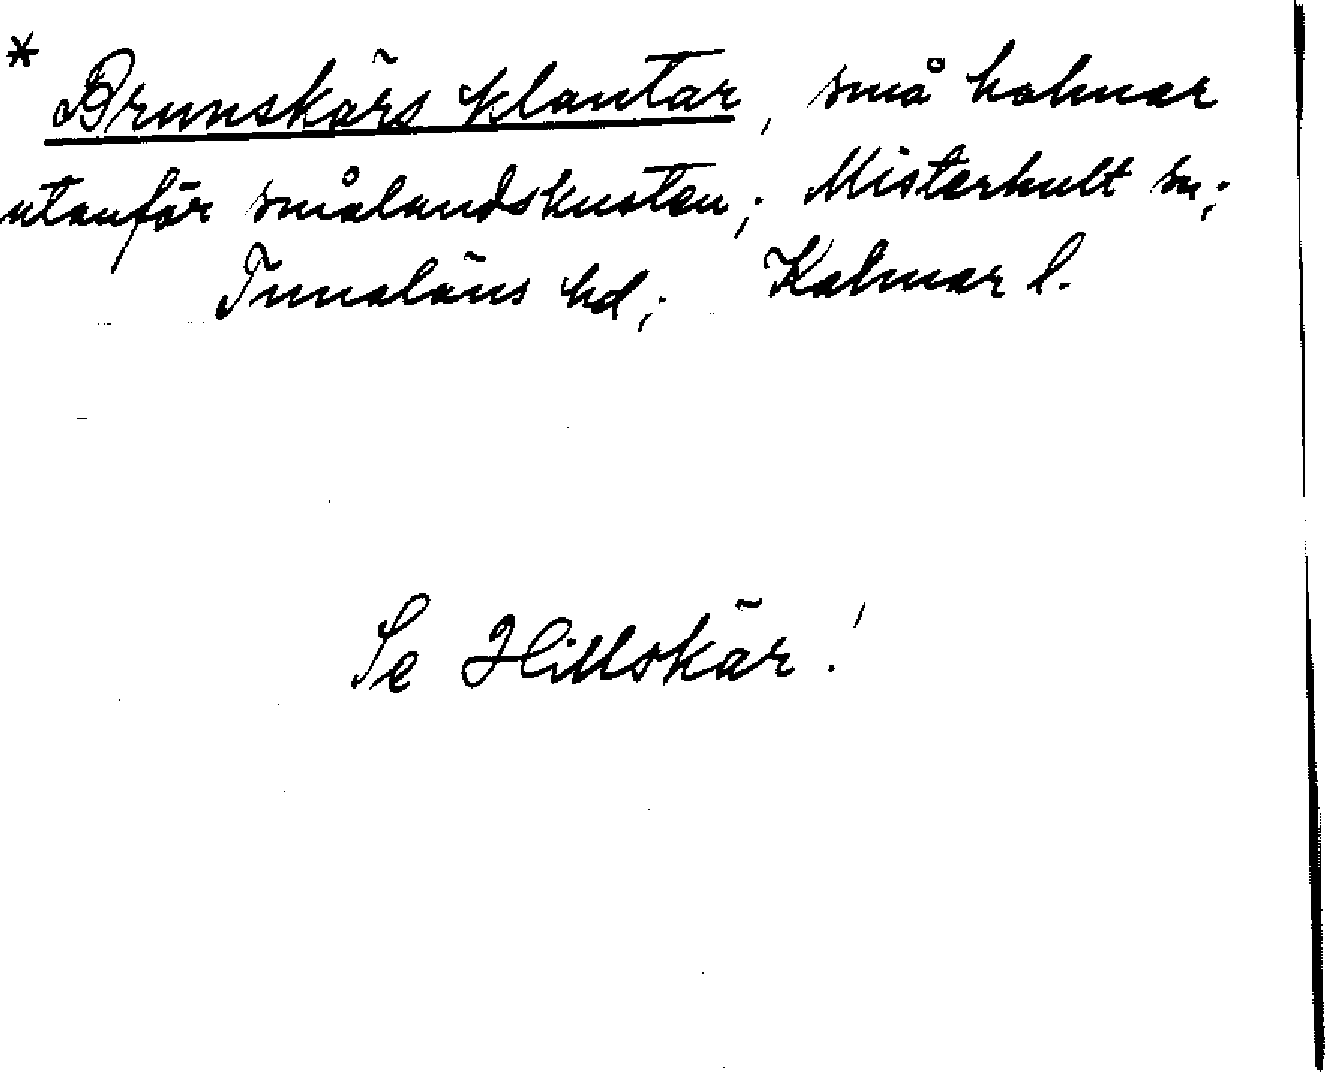 * Brunskärs klantar, små holmar
utanför smålandskusten; Misterhult sn;
Tunaläns hd; Kalmar l.
Se Hillskär!